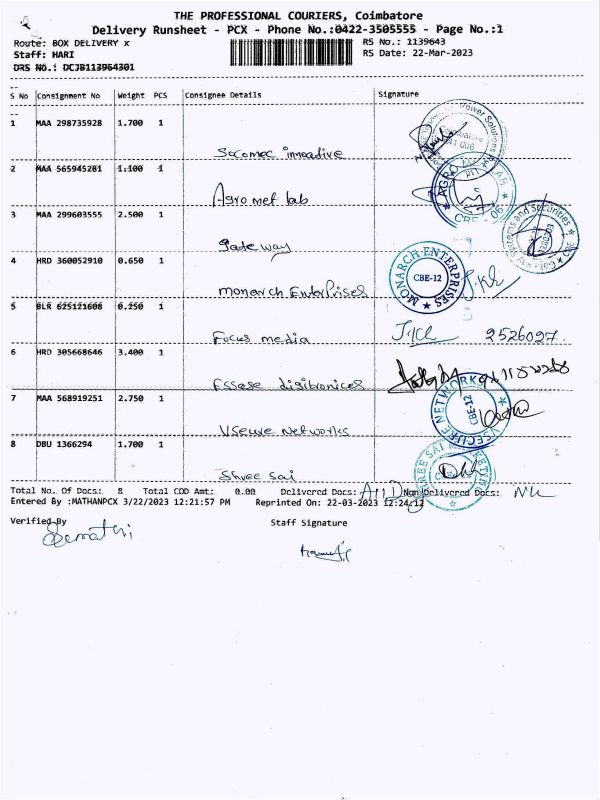 THE PROFESSIONAL COURIERS, Coimbatore
Delivery Runsheet - PCX - Phone No.:0422-3505555 - Page No.:1
Route: BOX DELIVERY x RS No.: 1139643
Staff: HARI RS Date: 22-Mar-2023
DRS No.: DCJB113964301
S No Consignment No Weight PCS Consignee Details Signature
1 MAA 298735928 1.700 1
Socomec innovative
2 MAA 565945281 1.100 1
Agro met lab
AGRO
3 MAA 299603555 2.500 1
Gateway
Systems and Securities
4 HRD 360052910 0.650 1
Monarch Enterprises
MONARCH ENTERPRISES
CBE-12
5 BLR 625121608 0.250 1
Focus media 2526027
6 HRD 305668646 3.400 1
Essase digitronices
7 MAA 568919251 2.750 1
Vsecure Networks
VSECURE NETWORKS
CBE-12
8 DBU 1366294 1.700 1
Shree sai
SHREE SAI MARKETING
Total No. Of Docs: 8 Total COD Amt: 0.00 Delivered Docs: All D Non Delivered Docs: Nil
Entered By :MATHANPCX 3/22/2023 12:21:57 PM Reprinted On: 22-03-2023 12:24:12
Verified By Staff Signature